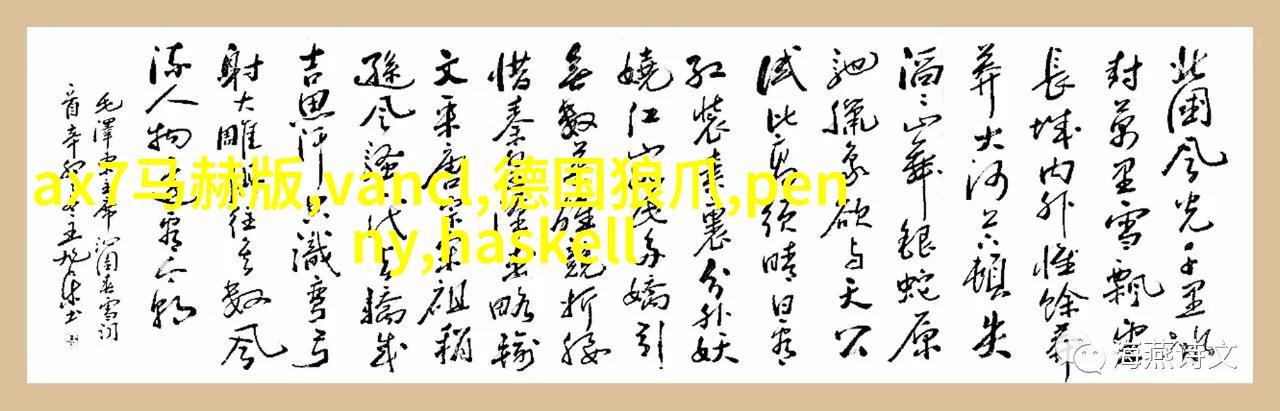 北國风光千里冰
封萬里雪飄望
長城内外惟餘莽
莽大河上下頓失
滔滔山舞銀蛇原
馳臘象欲与天公
試比高须晴日看
红装素裹分外妖
娆江山如此多嬌引
無數英雄競折腰
惜秦皇漢武略输
文采唐宗宋祖稍
逊风骚一代天驕成
吉思汗只識弯弓
射大雕俱往矣數風
流人物还看今朝
毛澤东主席沁園春雪词
ax7马赫版,vancl,德国狼爪,pen
ny,haskell
海燕诗文